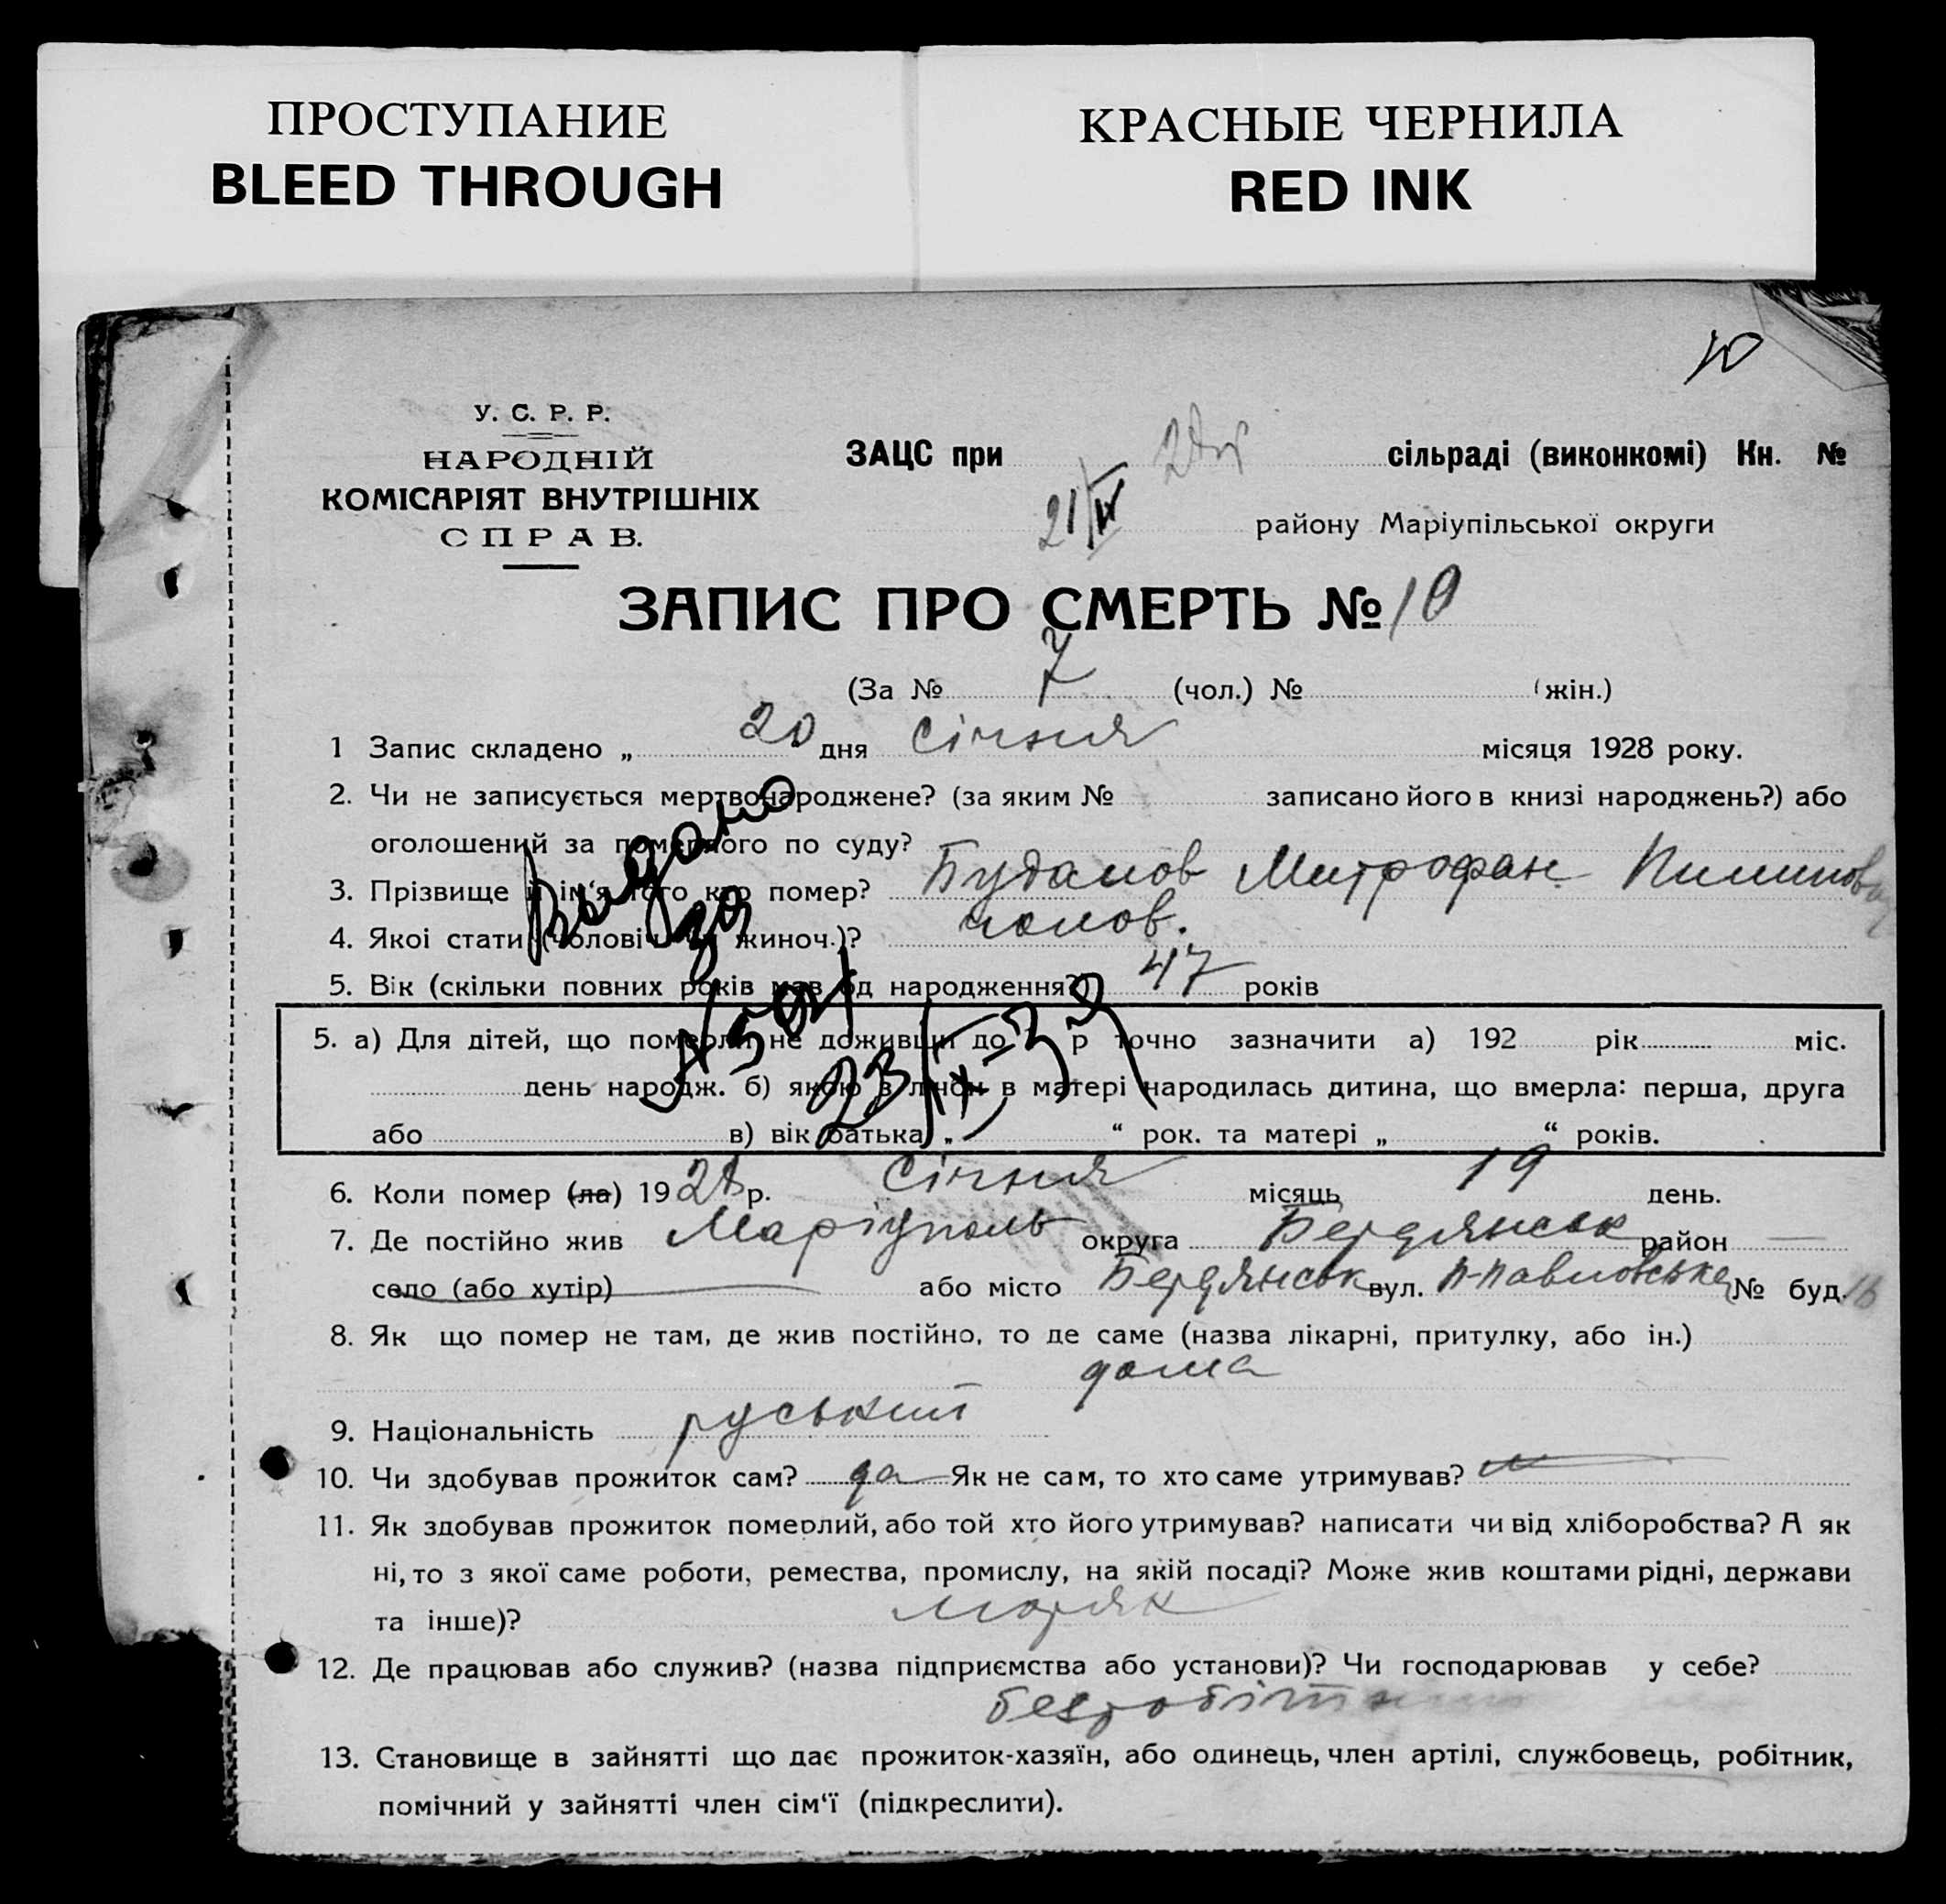 ПРОСТУПАНИЕ
BLEED THROUGH
КРАСНЫЕ ЧЕРНИЛА
RED INK
10
У. С. Р. Р.
НАРОДНІЙ
КОМІСАРІЯТ ВНУТРІШНІХ
СПРАВ.
ЗАЦС при сільраді (виконкомі) Кн. №
21/IV
району Маріупільської округи
ЗАПИС ПРО СМЕРТЬ № 10
(За № 7 (чол.) № (жін.)
1 Запис складено „ 20 дня січня місяця 1928 року.
2. Чи не записується мертвонароджене? (за яким № записано його в книзі народжень?) або
оголошений за померлого по суду?
3. Прізвище й ім‘я того кто помер? Буданов Митрофан
4. Якоі стати (чоловіч. чи жиноч.)? чолов.
5. Вік (скільки повних років мав од народження?) 47 років
Выдано
5. а) Для дітей, що померли не доживши до р точно зазначити а) 192 рік міс.
день народж. б) якою з лічби в матері народилась дитина, що вмерла: перша, друга
або в) вік батька „ “ рок. та матері „ “ років.
6. Коли помер (ла) 1928 р. січня місяць 19 день.
7. Де постійно жив Маріуполь округа Бердянськ район
село (або хутір) або місто Бердянськ вул. П-Павловська № буд. 16
8. Як що помер не там, де жив постійно, то де саме (назва лікарні, притулку, або ін.)
дома
9. Національність руський
10. Чи здобував прожиток сам? да Як не сам, то хто саме утримував?
11. Як здобував прожиток померлий, або той хто його утримував? написати чи від хліборобства? А як
ні, то з якої саме роботи, ремества, промислу, на якій посаді? Може жив коштами рідні, держави
та інше)? моряк
12. Де працював або служив? (назва підприємства або установи)? Чи господарював у себе?
безробітний
13. Становище в зайнятті що дає прожиток-хазяїн, або одинець, член артілі, службовець, робітник,
помічний у зайнятті член сім‘ї (підкреслити).